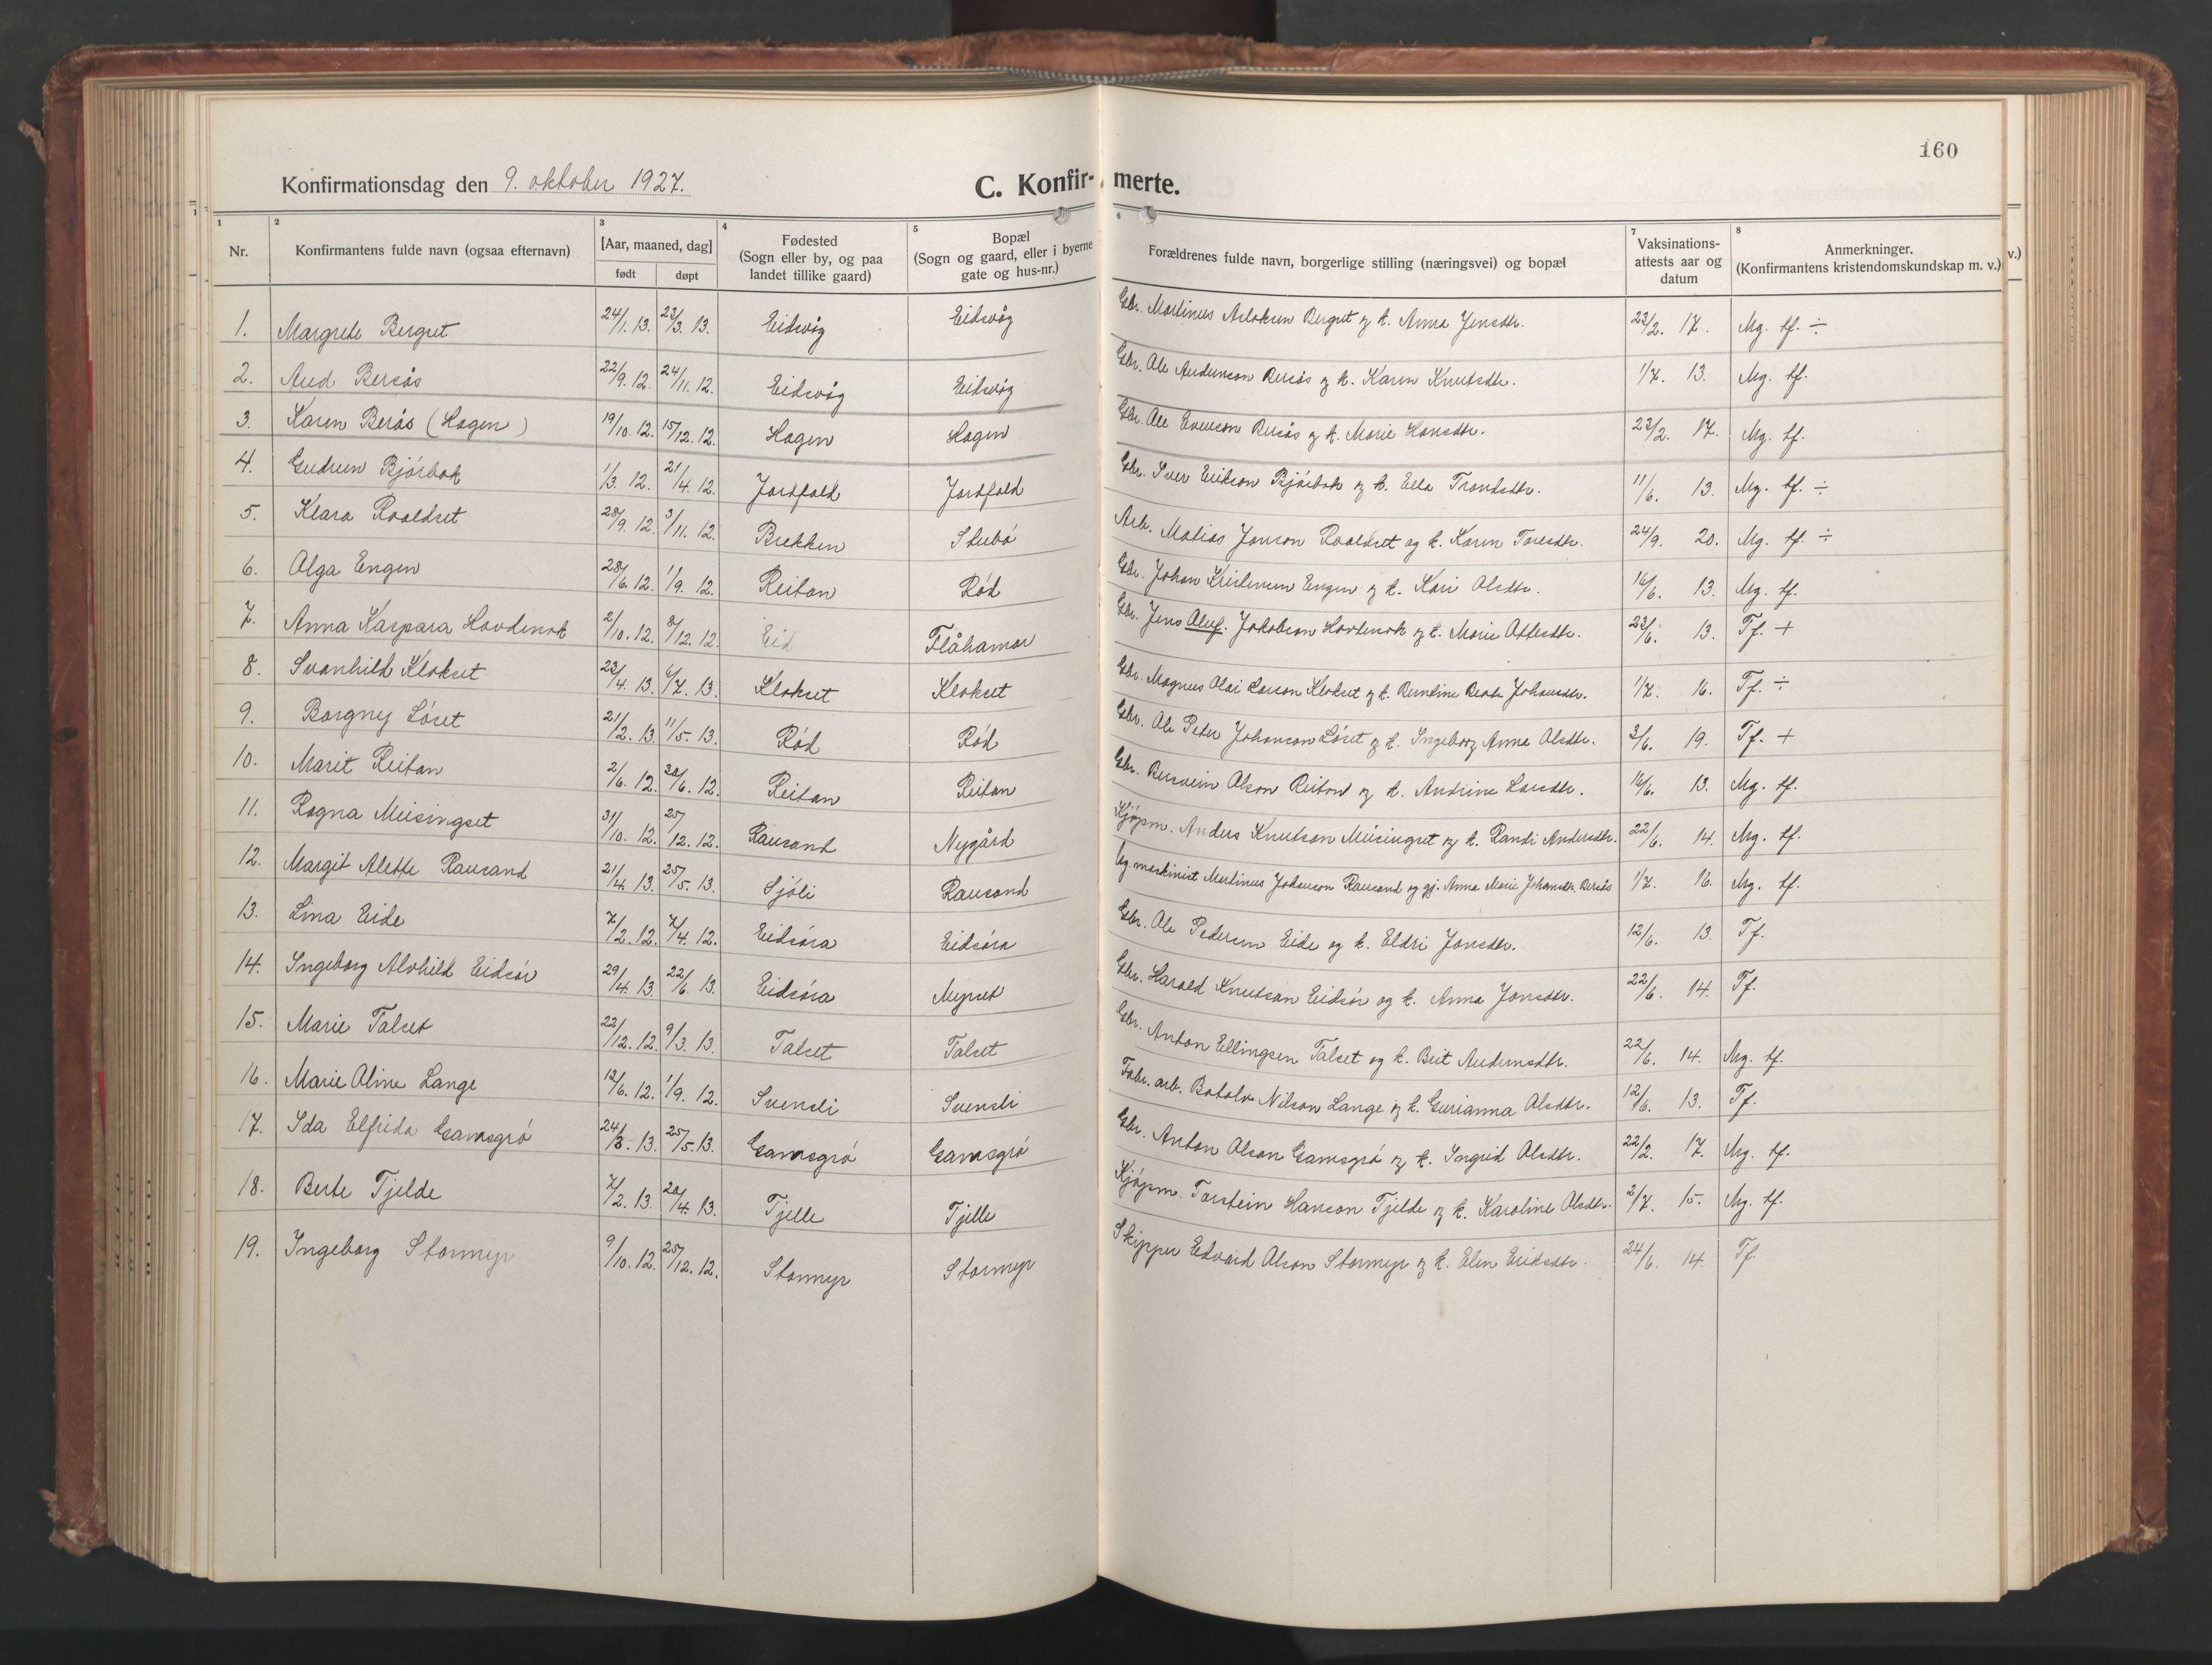 160
Konfirmationsdag den 9. oktober 1927.
C. Konfir- merte.
1 2 3 4 5 6 7 8
Nr. Konfirmantens fulde navn (ogsaa efternavn) [Aar, maaned, dag] født døpt Fødested (Sogn eller by, og paa landet tillike gaard) Bopæl (Sogn og gaard, eller i byerne gate og hus-nr.) Forældrenes fulde navn, borgerlige stilling (næringsvei) og bopæl Vaksinations- attests aar og datum Anmerkninger. (Konfirmantens kristendomskundskap m. v.) v.)
1. Margrete Bergset 24/1. 13. 23/3. 13. Eidsvåg Eidsvåg Gbr. Martinus Aslaksen Bergset og k. Anna Jensdtr. 23/2. 17. Mg. tf. ÷
2. Aud Bersås 22/9. 12. 24/11. 12. Eidsvåg Eidsvåg Gbr. Ole Audunson Bersås og k. Karen Knutsdtr. 1/7. 13. Mg. tf.
3. Karen Berås (Hagen) 19/10. 12. 15/12. 12. Hagen Hagen Gbr. Ole Evenson Bersås og k. Marie Hansdtr. 23/2. 17. Mg. tf.
4. Gudrun Bjørbak 1/3. 12. 21/4. 12. Jordfald Jordfald Gbr. Iver Erikson Bjørbak og k. Ella Trondsdtr. 11/6. 13. Mg. tf. ÷
5. Klara Roaldset 28/9. 12. 3/11. 12. Brekken Stubø Arb. Matias Jonson Roaldset og k. Karen Toresdtr. 24/9. 20. Mg. tf. ÷
6. Olga Engen 28/6. 12. 1/9. 12. Reitan Rød Gbr. Johan Kristensen Engen og k. Kari Olsdtr. 16/6. 13. Mg. tf.
7. Anna Kaspara Hovdenak 2/10. 12. 8/12. 12. Eid Flåhamar Gbr. Jens Aluf. Jakobson Hovdenak og k. Marie Ottesdtr. 23/6. 13. Tf. +
8. Svanhild Klokset 23/4. 13. 6/7. 13. Klokset Klokset Gbr. Magnus Olai Larson Klokset og k. Berntine Beate Johansdtr. 1/7. 16. Tf. ÷
9. Borgny Løset 21/2. 13. 11/5. 13. Rød Rød Gbr. Ole Peter Johanson Løset og k. Ingeborg Anna Olsdtr. 3/6. 19. Tf. +
10. Marit Reitan 2/6. 12. 30/6. 12. Reitan Reitan Gbr. Bersvein Olson Reitan og k. Andrine Larsdtr. 16/6. 13. Mg. tf.
11. Ragna Meisingset 31/10. 12. 25/12. 12. Rausand Nygård Kjøpm. Anders Knutson Meisingset og k. Randi Andersdtr. 22/6. 14. Mg. tf.
12. Margit Alette Rausand 21/4. 13. 25/5. 13. Sjøli Rausand Ug. maskinist Martinus Johanson Rausand og gj. Anna Marie Johansdtr. Bersås 1/7. 16. Mg. tf.
13. Lina Eide 7/2. 12. 7/4. 12. Eidsøra Eidsøra Gbr. Ole Pedersen Eide og k. Eldri Jonsdtr. 12/6. 13. Tf.
14. Ingeborg Alvhild Eidsør 29/4. 13. 22/6. 13. Eidsøra Myrset Gbr. Harald Knutson Eidsør og k. Anna Jonsdtr. 22/6. 14. Tf.
15. Marie Talset 22/12. 12. 9/3. 13. Talset Talset Gbr. Anton Ellingsen Talset og k. Brit Audunsdtr. 22/6. 14. Mg. tf.
16. Marie Oline Lange 12/6. 12. 1/9. 12. Svensli Svensli Fabr. arb. Botolv Nilson Lange og k. Gurianna Olsdtr. 12/6. 13. Tf.
17. Ida Elfrida Gamsgrø 24/3. 13. 25/5. 13. Gamsgrø Gamsgrø Gbr. Anton Olson Gamsgrø og k. Ingrid Olsdtr. 22/2. 17. Mg. tf.
18. Berte Tjelde 7/2. 13. 20/4. 13. Tjelle Tjelle Kjøpm. Torstein Hanson Tjelde og k. Karoline Olsdtr. 2/7. 15. Mg. tf.
19. Ingeborg Stormyr 9/10. 12. 25/12. 12. Stormyr Stormyr Skipper Edvard Olson Stormyr og k. Elen Eriksdtr. 24/6. 14. Tf.